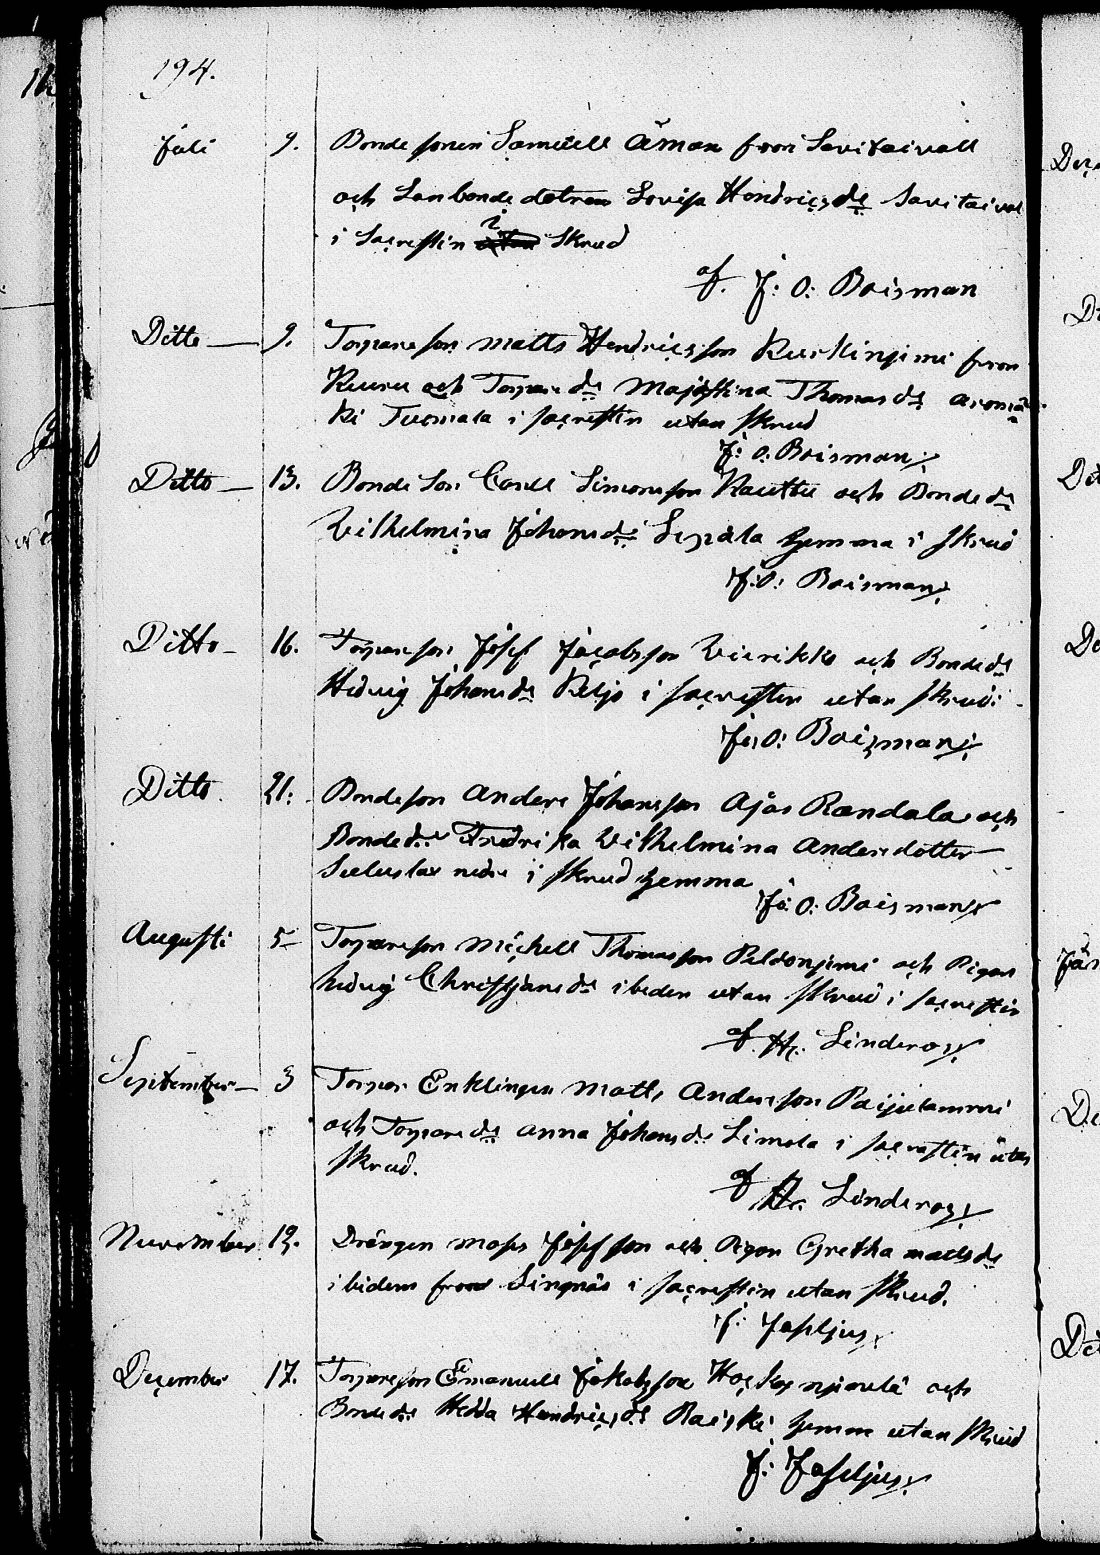 194.
Juli 9. Bonde sonen Samuell Åman from Savitaivall
och Lanbonde dotren Lovisa Hendricsde Savitaival
i Sacrestin i utan Skrud
af. J: O: Boisman
Ditto 9. Torpare son Matts Hendricsson Kurkinjemi from
Kuuru och Torpare de Majastina Thomasde
Tuomala i sacrestin utan skrud
J: O: Boisman
Ditto 13. Bonde Son Carll Simonsson Rauttu och Bonde de
Wilhelmina Johansde Sepälä hemma i skrud
J: O: Boisman
Ditto 16. Torpare son Josef Jacobsson Wiirikko och Bonde de
Hedvig Johansde Keljo i sacrestin utan skrud:
J: O: Boisman
Ditto. 21. Bondeson Anders Johansson Ajos Randala och
Bonde de Fredrika Wilhelmina Andersdotter
i skrud hemma
Jo: O: Boisman
Augusti 5 Torpareson Michell Thomasson Peldonjemi och Pigan
hedvig Christjansde ibiden utan skrud i sacrestin
af. H. Linderos
September 3 Torpar Enklingen Matts Andersson Paijulammi
och Torpare de Anna Johansde Limola i sacrestin utan
skrud.
af H. Linderos
November 12. Drängen Moses Josefsson och Pigan Gretha Mattsde
ibidem from Lingnäs i sacrestin utan skrud.
J: Jaseljus
December 17. Torpareson Emanuell Jakobsson och
Bonde de Hedda Hendricsde Raiski hemma utan skrud
J: Jaseljus